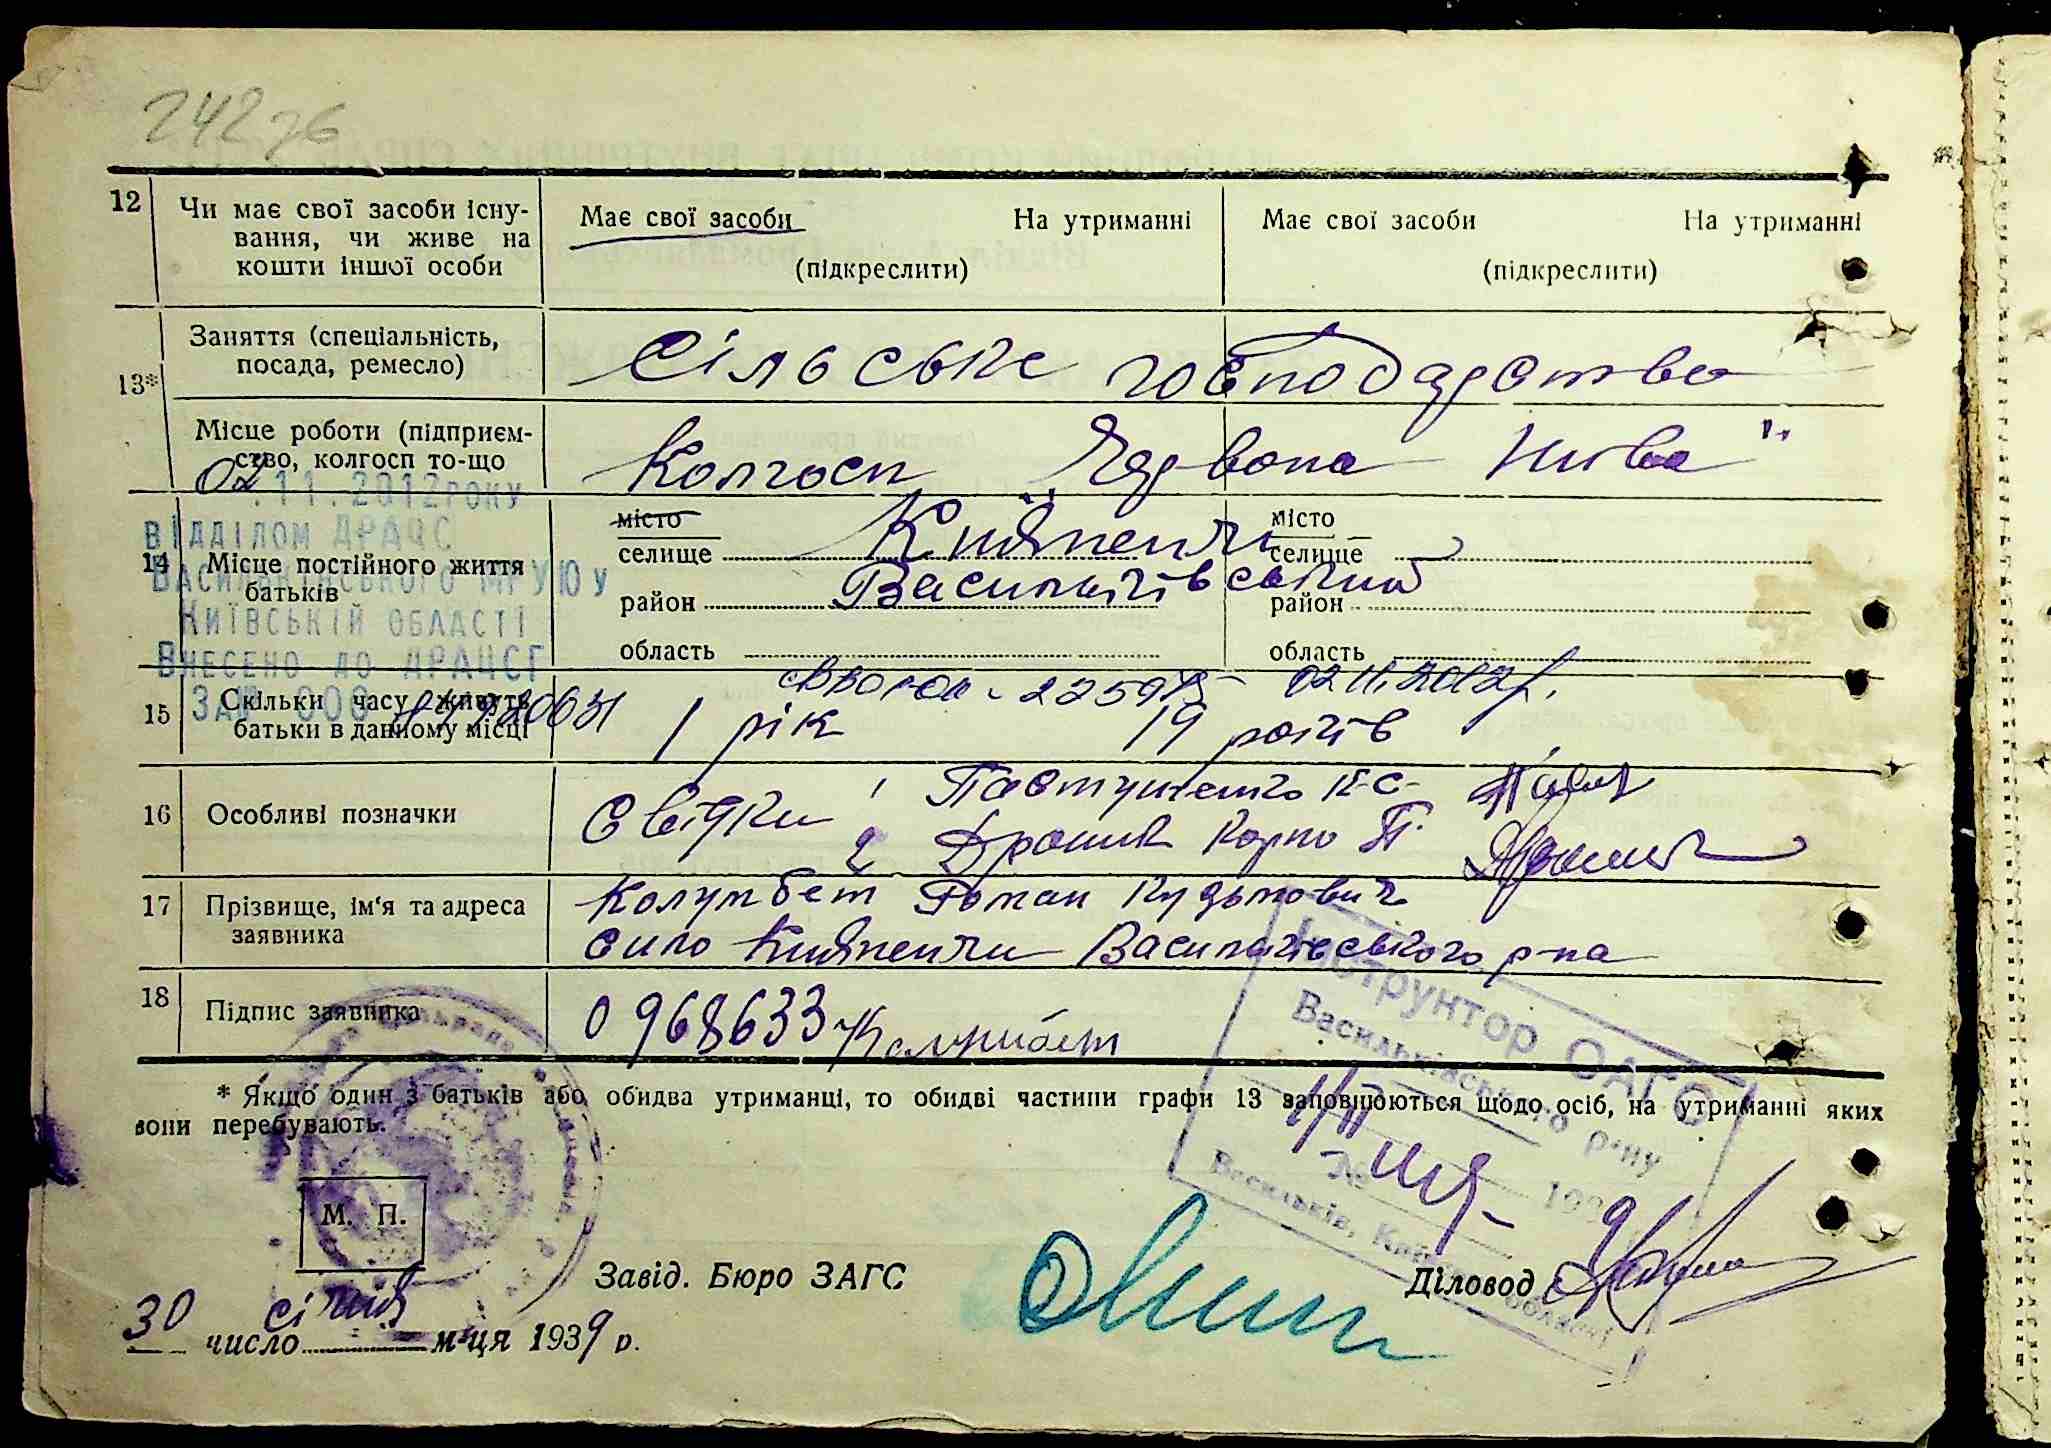 24276
12 Чи має свої засоби існу-
вання, чи живе на
кошти іншої особи
Має свої засоби На утриманні
(підкреслити)
Має свої засоби На утриманні
(підкреслити)
13*
Заняття (спеціальність,
посада, ремесло)
Сільське господарство
Місце роботи (підприєм-
ство, колгосп то-що
Колгосп Червона Нива"
02.11.2012 РОКУ
ВІДДІЛОМ ДРАЦС
ВАСИЛЬКІВСЬКОГО МРУЮ
КИЇВСЬКІЙ ОБЛАСТІ
ВНЕСЕНО ДО ДРАЦСГ
ЗА №
14 Місце постійного життя
батьків
місто
селище
район Васильківський
область
місто
селище
район
область
15 Скільки часу живуть
батьки в данному місці
1 рік 19 років
02.11.2012р.
16 Особливі позначки
Свідки 1 Пастушенко К.С.
2 Дрошик Карпо П.
17 Прізвище, ім'я та адреса
заявника
Колумбет Роман Кузьмович
село Васильківського р-на
18 Підпис заявника
0968633 Колумбет
* Якщо один з батьків або обидва утриманці, то обидві частини графи 13 заповнюються щодо осіб, на утриманні яких
вони перебувають.
Інструктор ОАГС
Васильківського р-ну
№ 193
Васильків, Київської області
М. П.
Завід. Бюро ЗАГС
Діловод
30 число січня м-ця 1939 р.